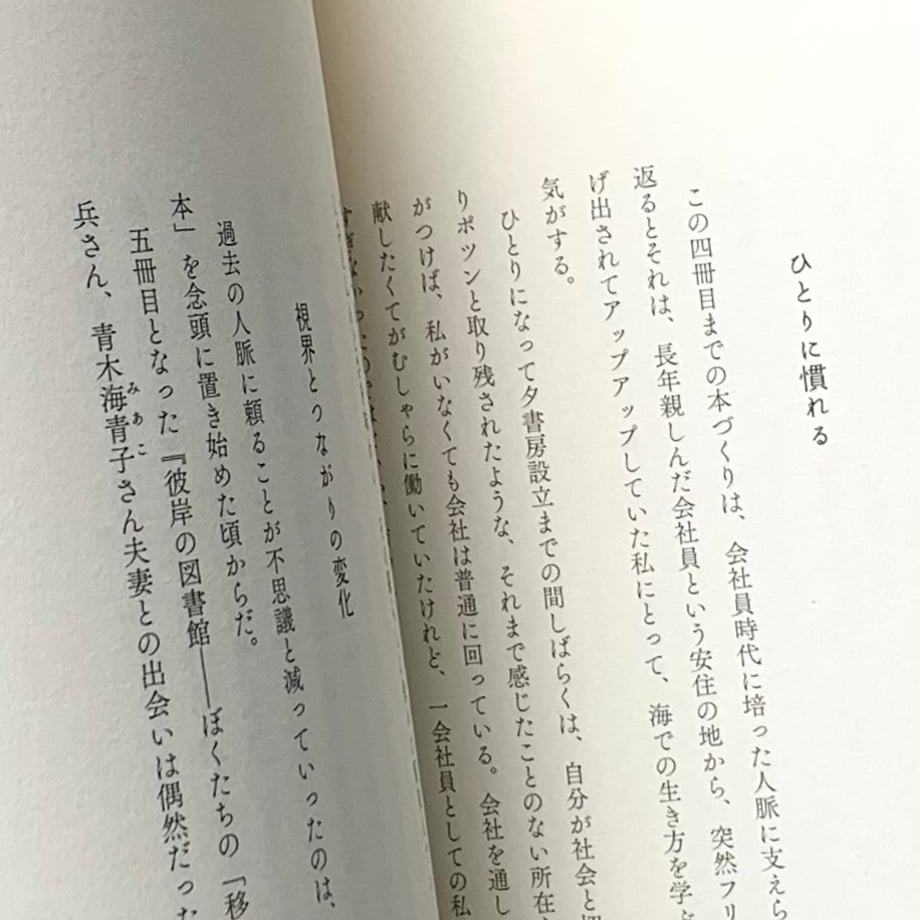 ひとりに慣れる
この四冊目までの本づくりは、会社員時代に培った人脈に支えら
返るとそれは、長年親しんだ会社員という安住の地から、突然フリ
げ出されてアップアップしていた私にとって、海での生き方を学ぶ
気がする。
ひとりになって夕書房設立までの間しばらくは、自分が社会と切
りポツンと取り残されたような、それまで感じたことのない所在
がつけば、私がいなくても会社は普通に回っている。会社を通し
献したくてがむしゃらに働いていたけれど、一会社員としての私
視界とつながりの変化
過去の人脈に頼ることが不思議と減っていったのは、
本」を念頭に置き始めた頃からだ。
五冊目となった『彼岸の図書館――ぼくたちの「移
兵さん、青木海青子さん夫妻との出会いは偶然だった
みあこ